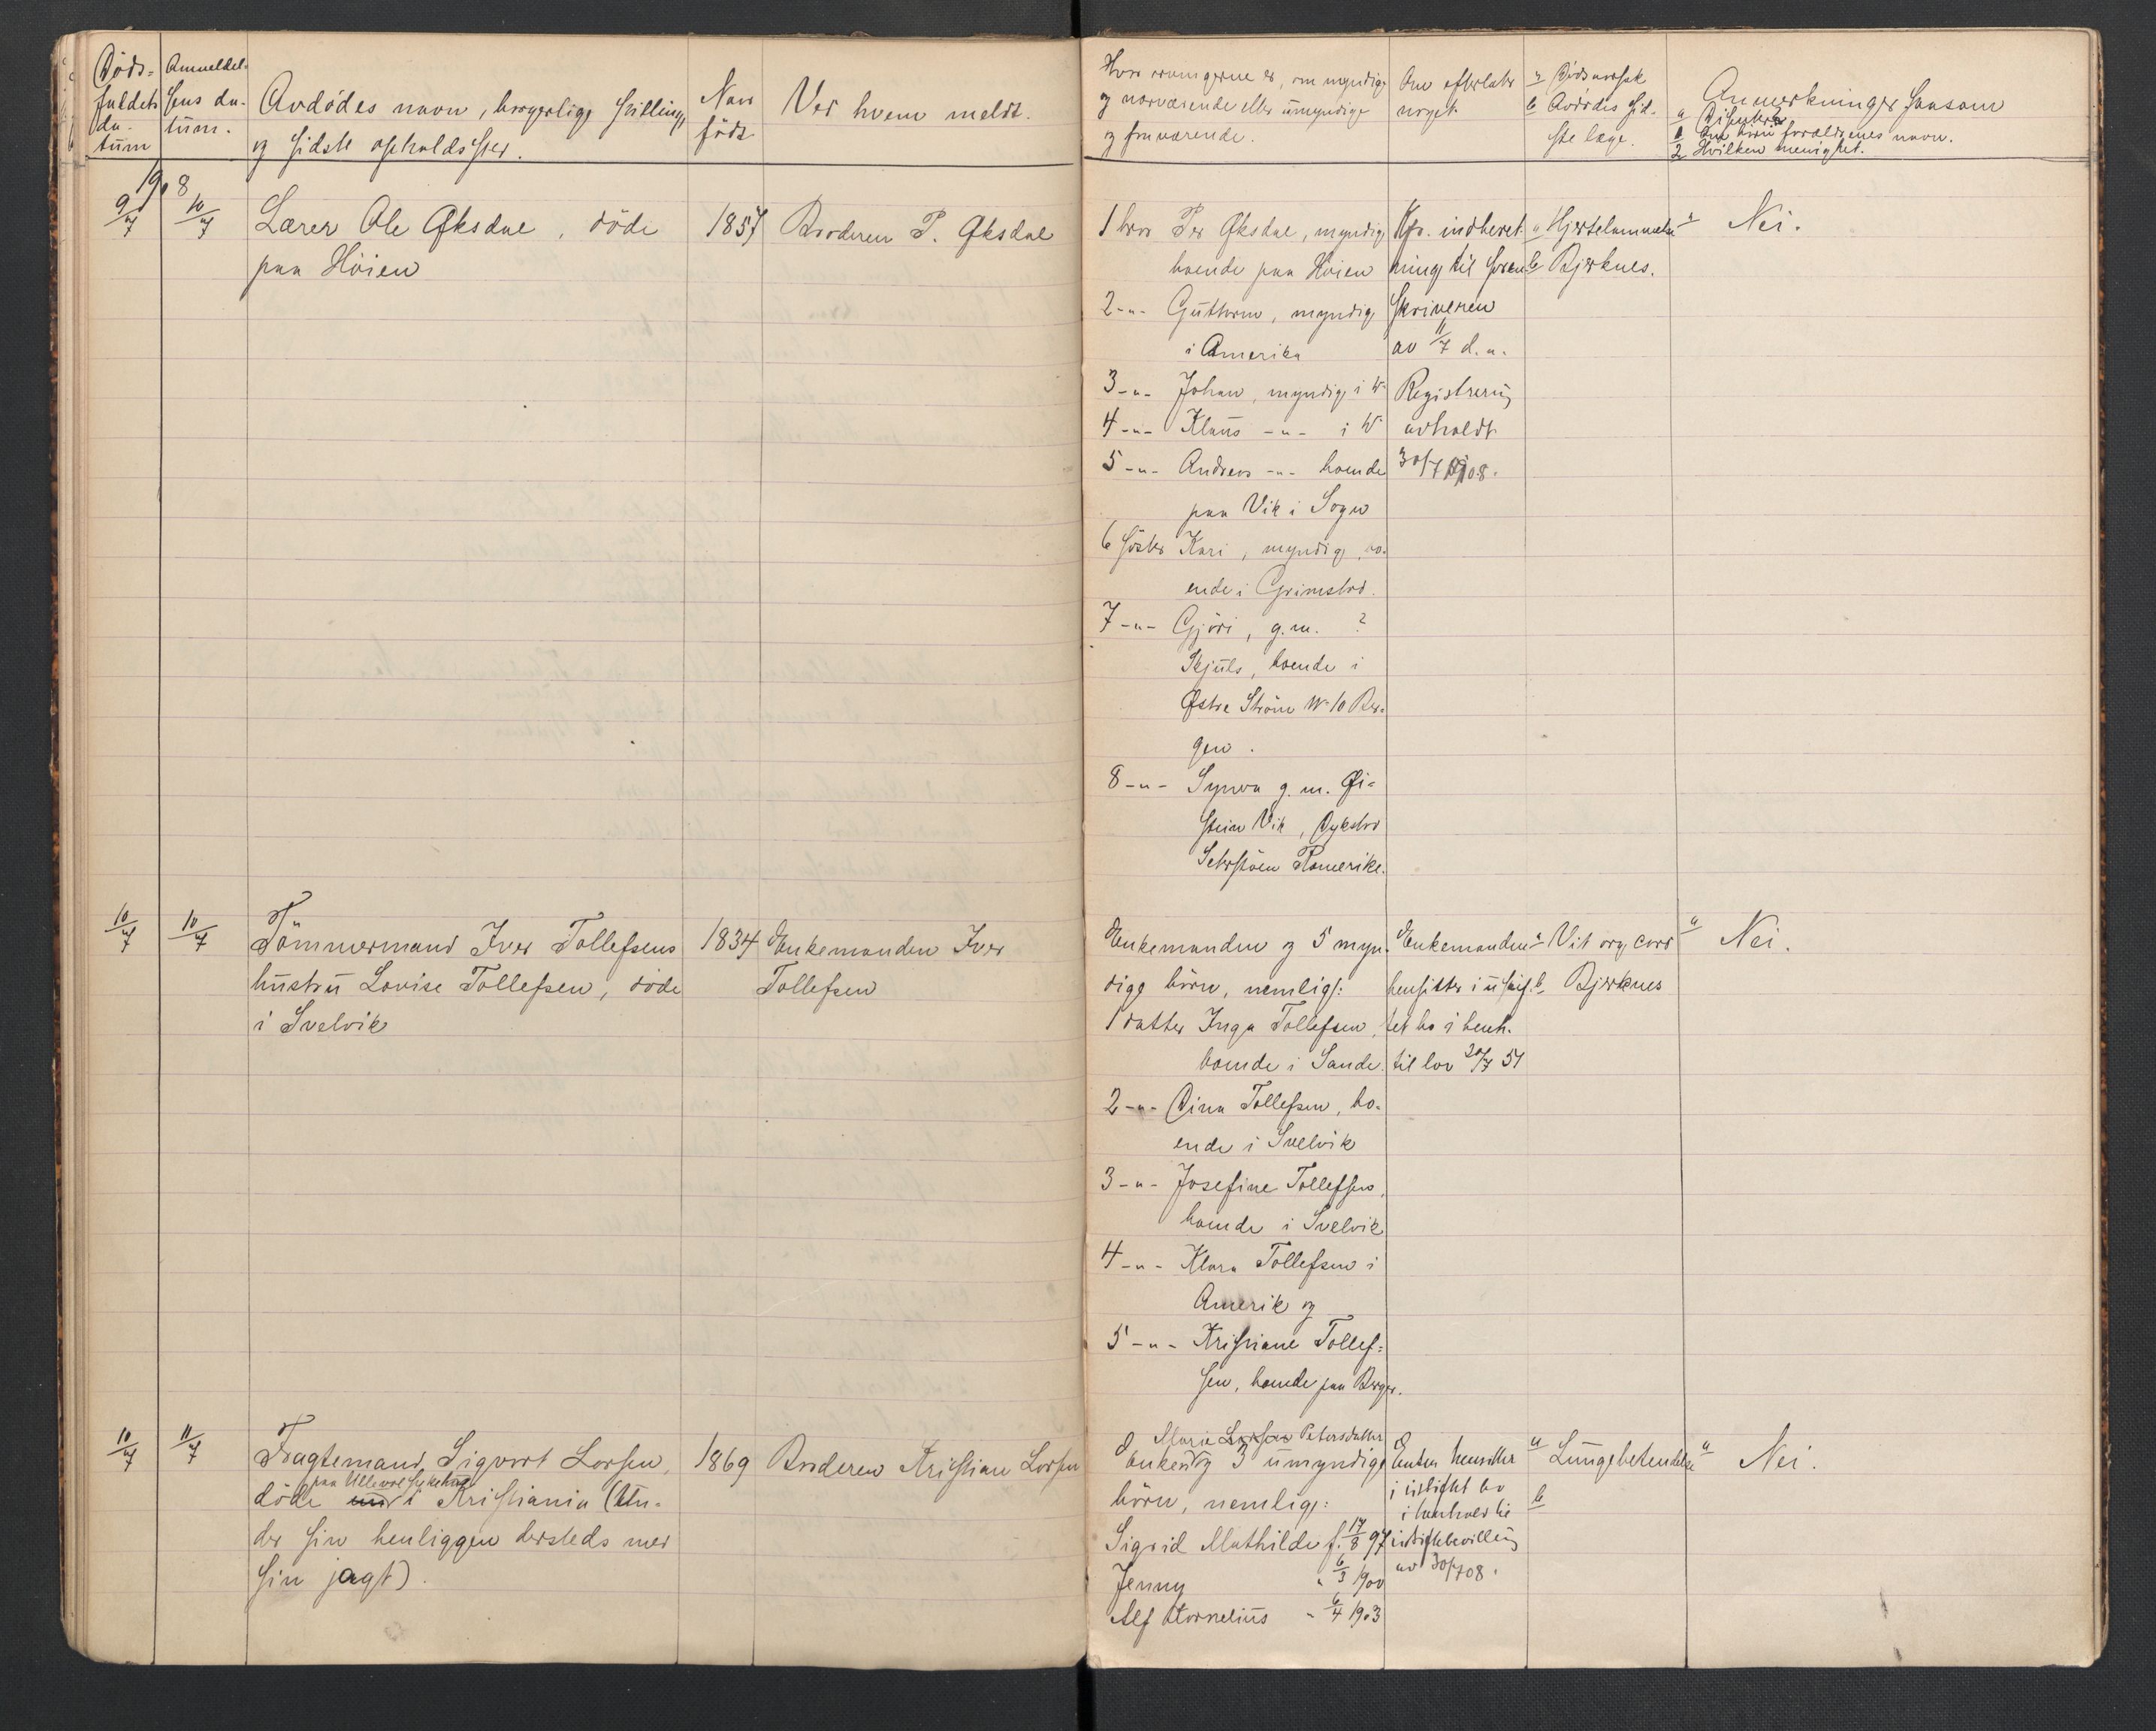 Døds=
faldets
da-
tum
Anmeldel-
sens da-
tum.
Avdødes navn, borgerlige stilling,
og sidste opholdssted.
Naar
født
Ved hvem meldt.
Hvo arvingerne er, om myndige
og nærværende eller umyndige
og fraværende.
Om efterlatt
noget
a Dødsaarsak
b Avdødes sid-
ste læge.
Anmerkninger saasom
a
1 Om børn forældrenes navn.
2 Hvilken menighet.
1908
9/7
10/7
Lærer Ole Øksdal, døde
paa Høien
1857
Broderen P. Øksdal
1 bror Per Øksdal, myndig
boende paa Høien
2 -"- Guttorm, myndig
i Amerika
3 -"- Johan, myndig i
4 -"- Klaus -"- i
5 -"- Andreas -"- boende
paa Vik i Sogn
6 søster Kari, myndig, bo-
ende i Grimstad.
7 -"- Gjøri, g.m. ?
Skjuls, boende i
Østre Strøm No 10 Ber-
gen.
8 -"- Synva g.m. Øi-
stein Vik,
Romerike.
Kfr. indberet-
ning til soren-
skriveren
av 11/7 d.a.
Registrering
avholdt
30/7 1908.
a Hjertelammelse
b Bjerknes.
a Nei.
10/7
10/7
Tømmermand Iver Tollefsens
hustru Lovise Tollefsen, døde
i Svelvik
1834
Enkemanden Iver
Tollefsen
Enkemanden og 5 myn-
dige børn, nemlig:
1 datter Inga Tollefsen,
boende i Sande.
2 -"- Dina Tollefsen, bo-
ende i Svelvik
3 -"- Josefine Tollefsen,
boende i Svelvik
4 -"- Klara Tollefsen i
Amerik og
5 -"- Kristiane Tollef=
sen, boende paa Berger.
Enkemanden
hensitter i uskif-
tet bo i henh.
til lov 30/7 51
a Vit. org. cord
b Bjerknes
a Nei.
10/7
11/7
Fragtemand Sigvart Larsen,
paa Ullevol sykehus
døde i Kristiania (Un-
der sin henliggen dersteds med
sin jagt).
1869
Broderen Kristian Larsen
Marie Larsen Petersdatter
Enken og 3 umyndige
børn, nemlig:
Sigrid Mathilde f. 17/8 97
Jenny " 6/3 1900
Alf Kornelius " 6/4 1903
Enken hensitter
i uskiftet bo
i henhold til
uskiftebevilling
av 30/7 08.
a Lungebetendelse
b
a Nei.